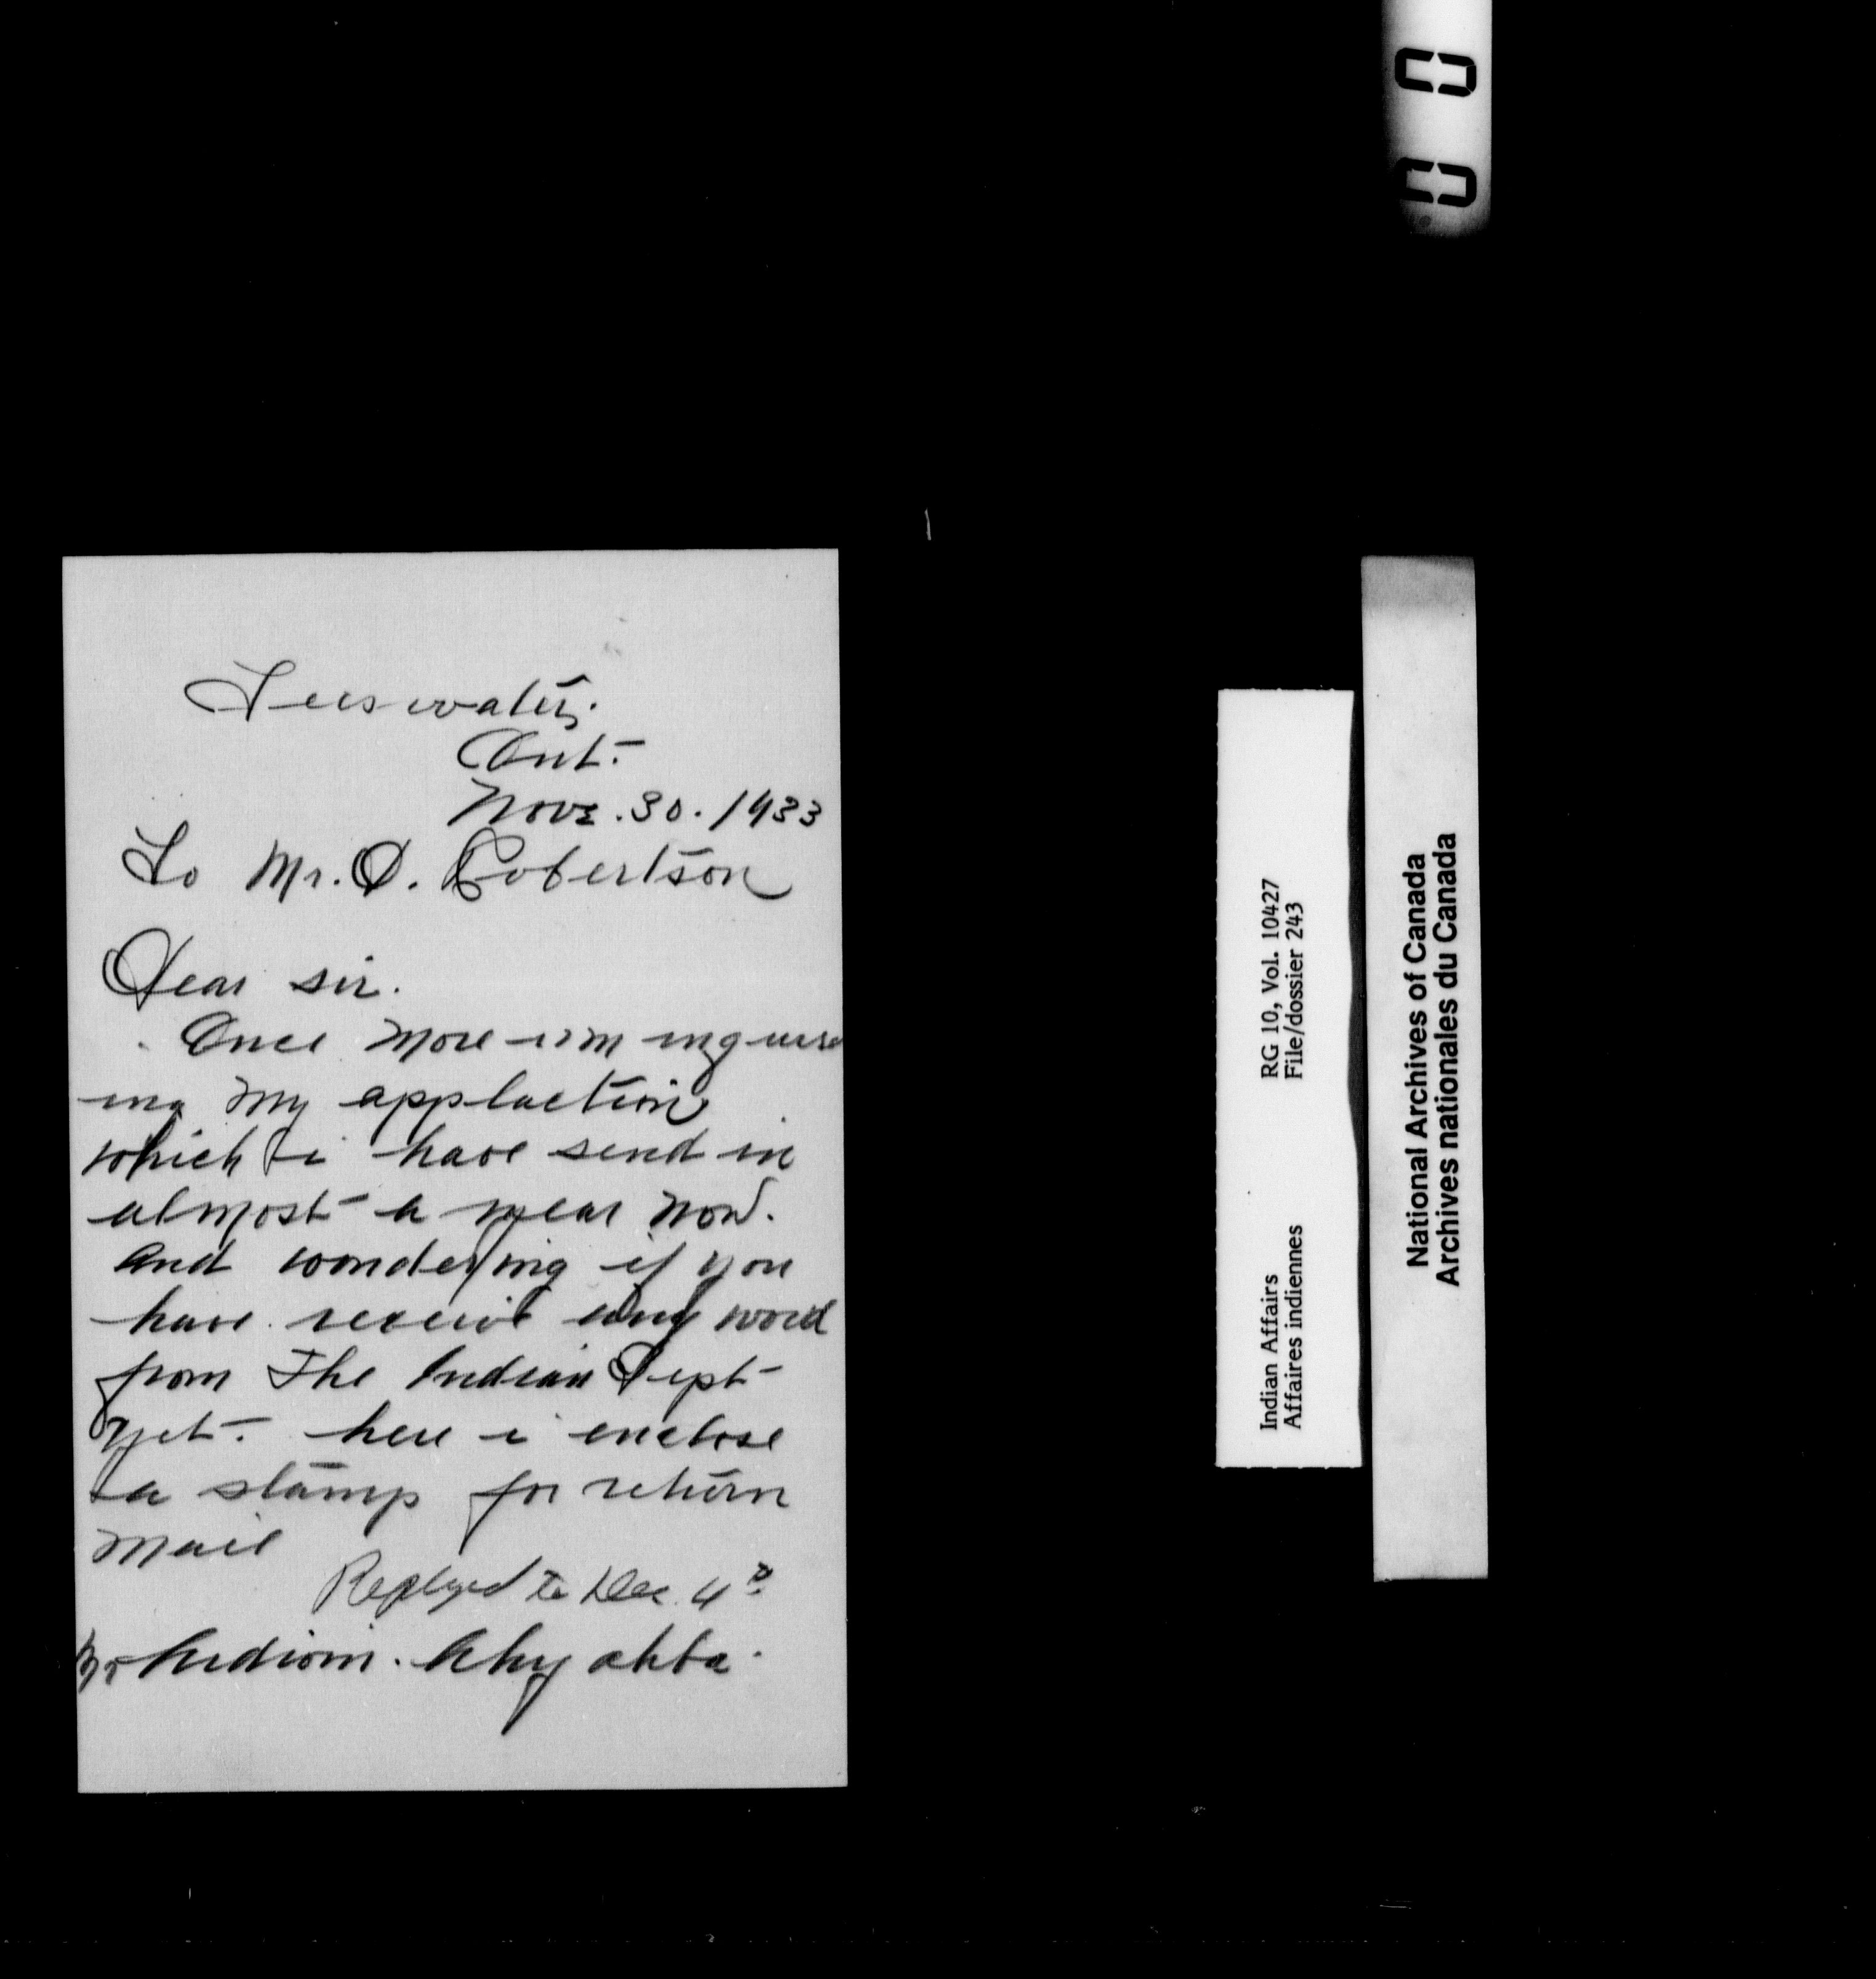 Teeswater,
Ont.
Nove. 30. 1933
To Mr. D. Robertson
Dear sir.
Once more i'm inquire
ing my applaction
which i have send in
almost a year now.
and wondering if you
have receive any word
from The Indian Dept
yet. here i enclose
a stamp for return
mail
Replyed to Dec. 4
Ahyahba.
RG 10, Vol. 10427
File/dossier 243
Indian Affairs
Affaires indiennes
National Archives of Canada
Archives nationales du Canada
00